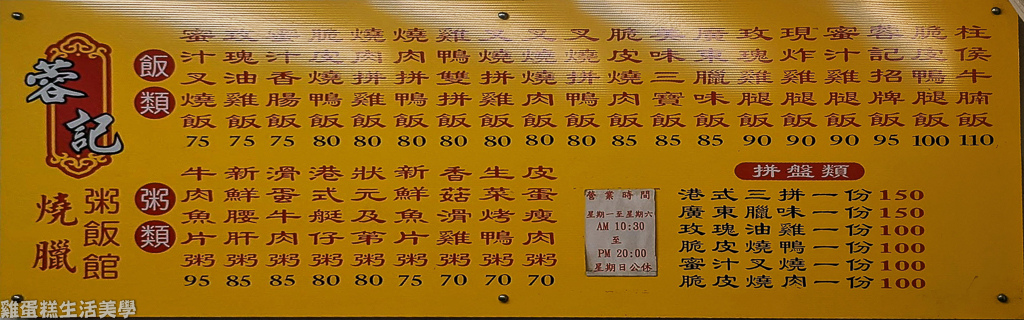 蓉記
燒臘
粥飯館
飯類
蜜汁叉燒飯 75
玫瑰油雞飯 75
蜜汁香腸飯 75
脆皮燒鴨飯 80
燒肉拼雞飯 80
燒肉拼鴨飯 80
雞鴨雙拼飯 80
叉燒拼雞飯 80
叉燒燒肉飯 80
叉燒拼鴨飯 80
脆皮燒肉飯 85
美味三寶飯 85
廣東臘味飯 85
玫瑰雞腿飯 90
現炸雞腿飯 90
蜜汁雞腿飯 90
蓉記招牌飯 95
脆皮鴨腿飯 100
柱侯牛腩飯 110
粥類
牛肉魚片粥 95
新鮮腰肝粥 85
滑蛋牛肉粥 85
港式艇仔粥 80
狀元及第粥 80
新鮮魚片粥 75
香菇滑雞粥 70
生菜烤鴨粥 70
皮蛋瘦肉粥 70
營業時間
星期一至星期六
AM 10:30
至
PM 20:00
星期日公休
拼盤類
港式三拼一份150
廣東臘味一份150
玫瑰油雞一份100
脆皮燒鴨一份100
蜜汁叉燒一份100
脆皮燒肉一份100
雞蛋糕生活美學